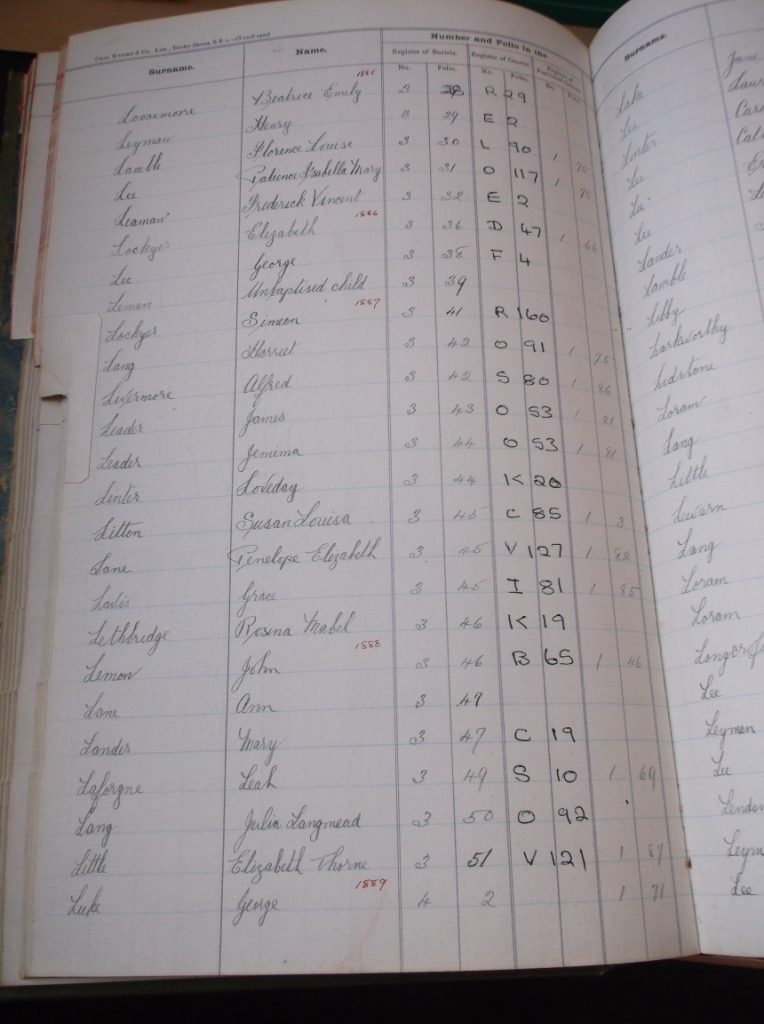 Surname. Name. Number and Folio in the
Register of Burials. Register of Graves. Register of
No. Folio. No. Folio. No. Fol.
1885
Loosemore Beatrice Emily 3 28 R 29
Leyman Henry 3 29 E 2
Lamble Florence Louise 3 30 L 90 1 75
Lee Patience Isabella Mary 3 31 O 117 1 75
Leaman Frederick Vincent 3 32 E 2
1886
Lockyer Elizabeth 3 36 D 47 1 66
Lee George 3 38 F 4
Lemon Unbaptised child 3 39
1887
Lockyer Simeon 3 41 R 160
Lang Harriet 3 42 O 91 1 75
Livermore Alfred 3 42 S 80 1 86
Leader James 3 43 O 53 1 81
Leader Jemima 3 44 O 53 1 81
Linter Loveday 3 44 K 20
Litton Susan Louisa 3 45 C 85 1 3
Lane Penelope Elizabeth 3 45 V 127 1 88
Lavis Grace 3 45 I 81 1 85
Lethbridge Rosina Mabel 3 46 K 19
1888
Lemon John 3 46 B 65 1 46
Lane Ann 3 47
Lander Mary 3 47 C 19
Laforgne Leah 3 49 S 10 1 69
Lang Julia Langmead 3 50 O 92
Little Elizabeth Thorne 3 51 V 121 1 87
1889
Luke George 4 2 1 71
Surname.
Lake Jane
Lee
Linter
Lee
Lee
Lee
Lander
Lamble
Libby
Larkworthy
Lidstone
Loram
Lang
Little
Lewarn
Lang
Loram
Loram
Lee
Leyman
Lee
Lender
Leym
Lee